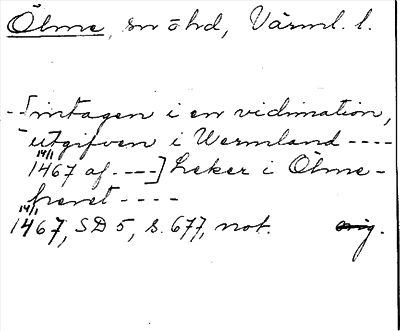 Ölme, sn o hd, Värml. l.
--[intagen i en vidimation,
utgifven i Wermland ----
14/1 1467 af. ---] Leker i Ölme-
heret ----
14/1 1467, SD 5, s. 677, not. orig.